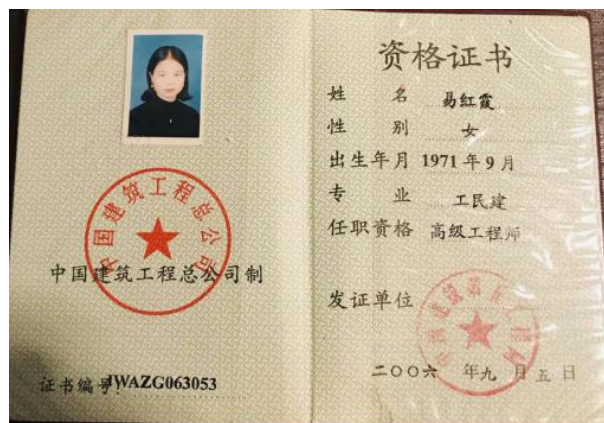 中国建筑工程总公司
中国建筑工程总公司制
证书编号: JWAZG063053
资格证书
姓 名 易红霞
性 别 女
出生年月 1971年9月
专 业 工民建
任职资格 高级工程师
发证单位
二〇〇六 年九 月五 日